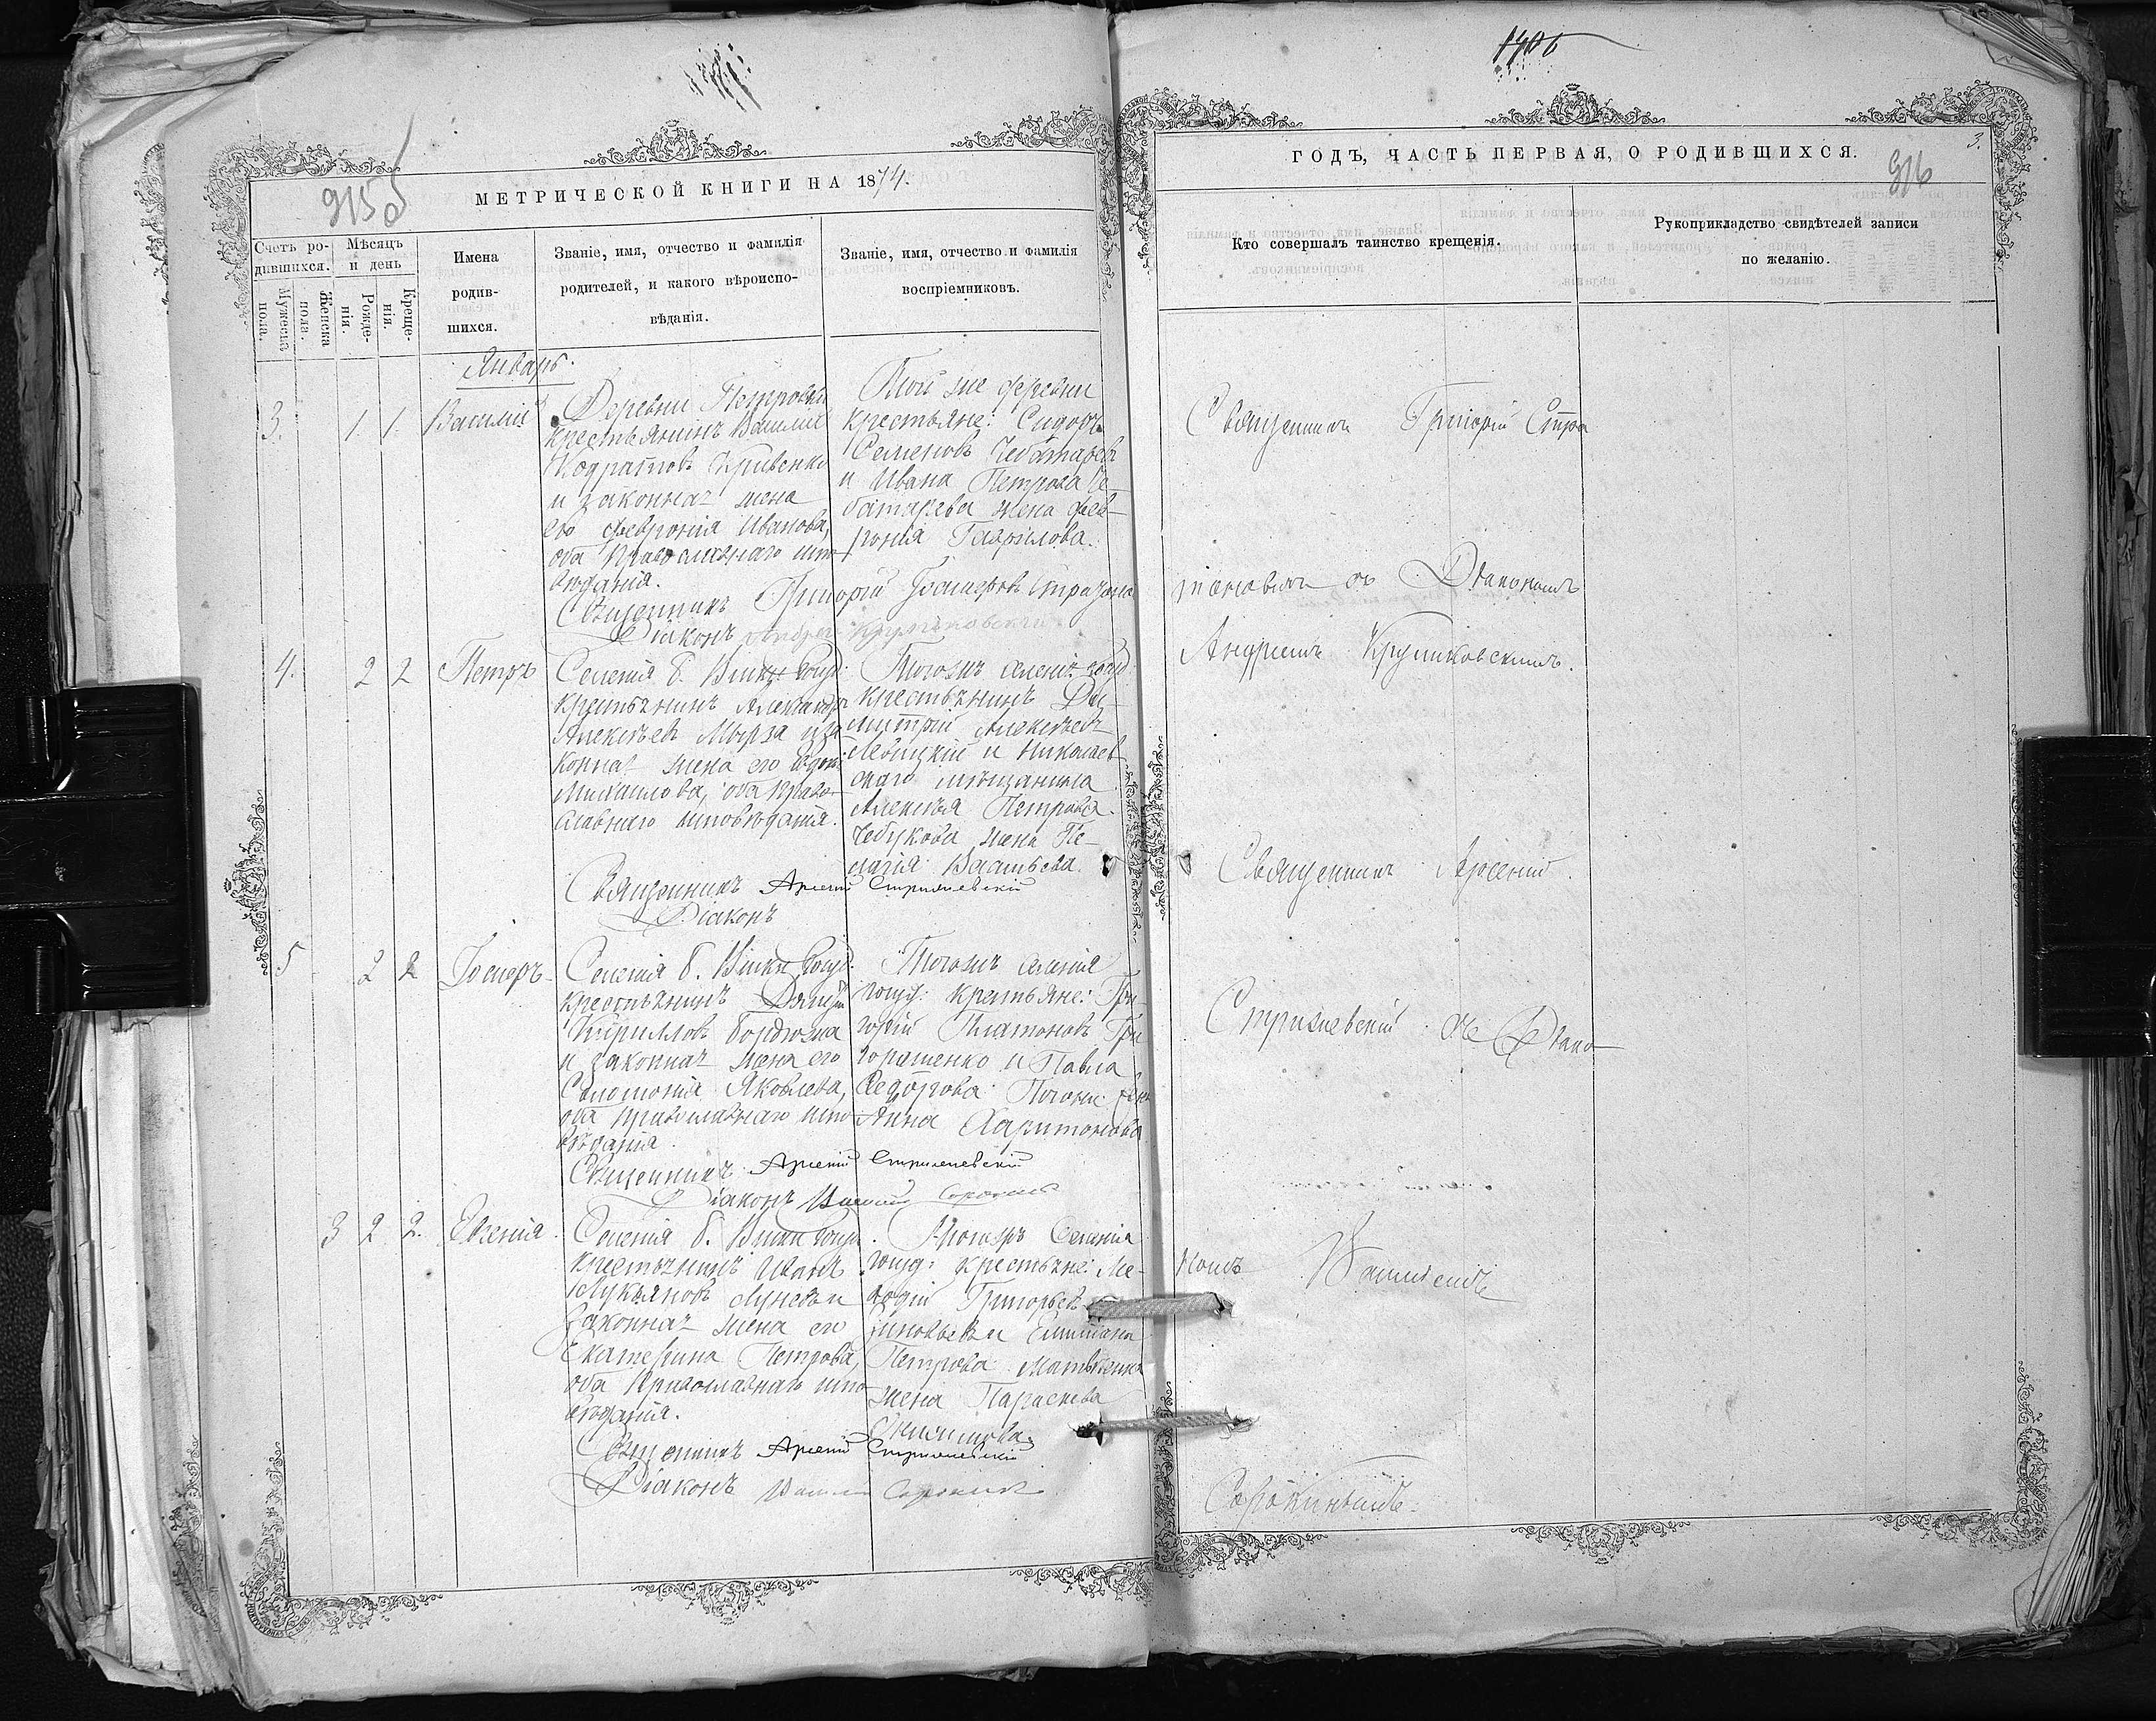 1406
915
МЕТРИЧЕСКОЙ КНИГИ НА 1874.
Счетъ ро-
дившихся.
Мужеска
пола.
Женска
пола.
Мѣсяцъ
и день
Рожде-
нія.
Креще-
нія.
Имена
родив-
шихся.
Званіе, имя, отчество и фамилія
родителей, и какого вѣроиспо-
вѣданія.
Званіе, имя, отчество и фамилія
воспріемниковъ.
Январь.
3. 1. 1. Василій
Деревни Петровки
крестьянинъ Василій
Кодратовъ Кривенко
и законная жена
его Феврония Иванова,
оба Православнаго испо-
вѣданія.
Той же деревни
крестьяне: Сидоръ
Семеновъ Чеботаревъ
и Ивана Петрова Че-
ботарева жена Фев-
ронія Гаврилова.
Священникъ Григорій
Діаконъ Андрей Крупиковскій
4. 2 2 Петръ
Селенія б. Вітки Госуд:
крестьянинъ Александръ
Алексѣевъ Мырза и за-
конная жена его
Михаилова, оба Право-
славнаго исповѣданія.
Тогожъ селенія госуд:
крестьянинъ Ди-
митрій Алексѣевъ
Левицкій и Николаев-
скаго мѣщанина
Алексѣя Петрова
Чебукова жена Пе-
лагія Васильева.
Священникъ Арсеній Стрижевскій
Діаконъ
5 2 2 Іосифъ
Селенія б. Вітки Госуд.
крестьянинъ
Кирилловъ Бордюжа
и законная жена его
Соломонія Яковлева,
оба православнаго испо-
вѣданія.
Тогожъ селенія
госуд: крестьяне: Гри-
горій Платоновъ Гри-
горашенко и Павла
Ѳедорова жена
Анна Харитонова
Священникъ Арсеній Стрижевскій
Діаконъ Василій Сорокинъ
3 2 2. Евгенія.
Селенія б. Вітки Госуд.
крестьянинъ Иванъ
Лукьяновъ Луневъ и
законная жена его
Екатерина Петрова,
оба Православнаго испо-
вѣданія.
Тогожъ Селенія
госуд: крестьяне: Ме-
ѳодій Григорьевъ
Зиновьевъ и
Петрова Матвѣенка
жена Параскева
Священникъ Арсеній Стрижевскій
Діаконъ Василій Сорокинъ
ГОДЪ, ЧАСТЬ ПЕРВАЯ, О РОДИВШИХСЯ.
3.
916
Кто совершалъ таинство крещенія.
Рукоприкладство свидѣтелей записи
по желанію.
Священникъ Григорій Стра
съ Діакономъ
Андреемъ Крупиковскимъ.
Священникъ Арсеній
Стрижевскій съ Діако-
номъ Василіемъ
Сорокинымъ.